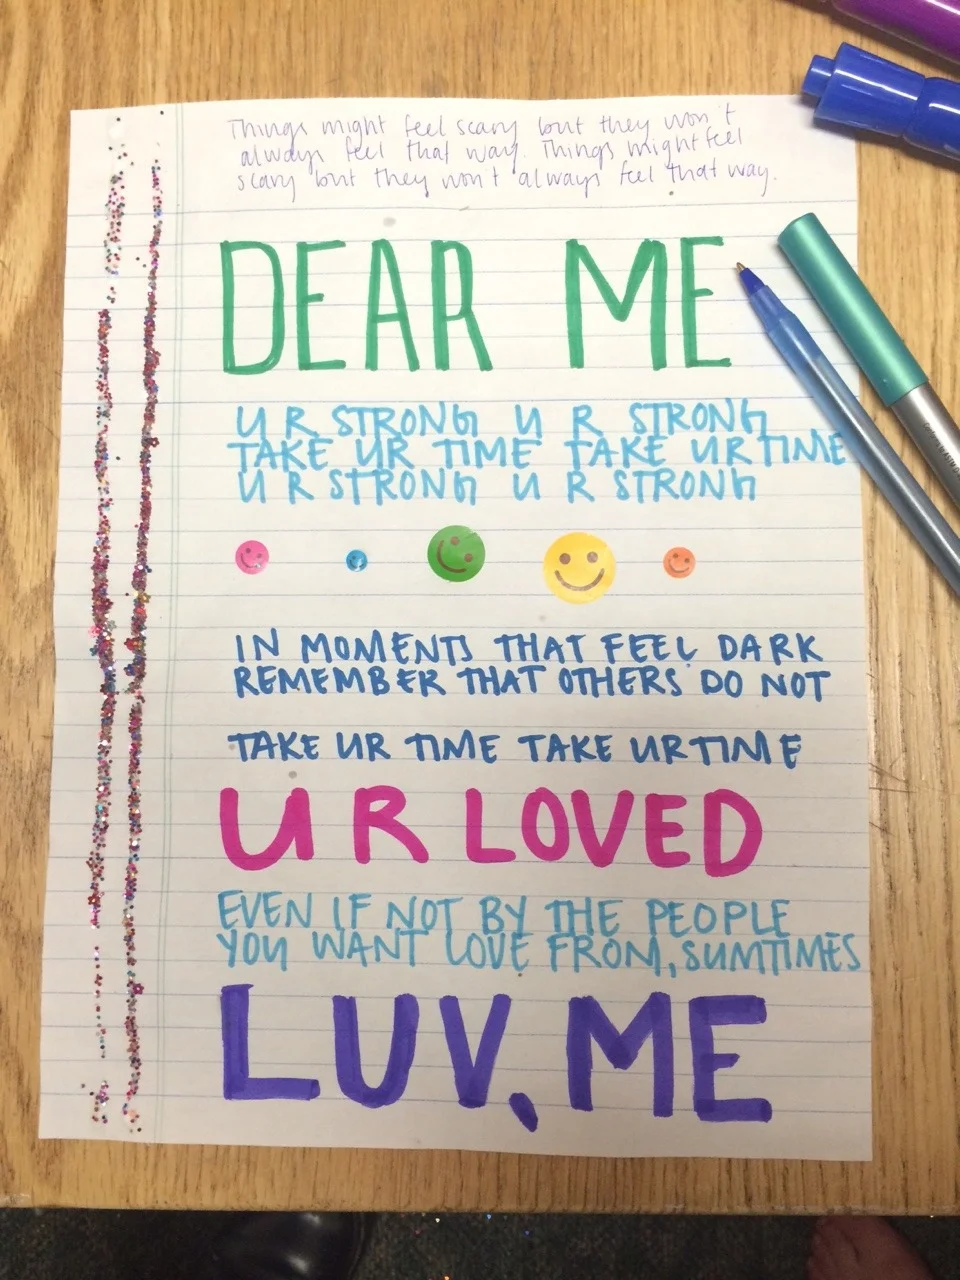 Things might feel scary but they won't
always feel that way. Things might feel
scary but they won't always feel that way.
DEAR ME
U R STRONG U R STRONG
TAKE UR TIME TAKE UR TIME
U R STRONG U R STRONG
IN MOMENTS THAT FEEL DARK
REMEMBER THAT OTHERS DO NOT
TAKE UR TIME TAKE UR TIME
U R LOVED
EVEN IF NOT BY THE PEOPLE
YOU WANT LOVE FROM, SUMTIMES
LUV, ME